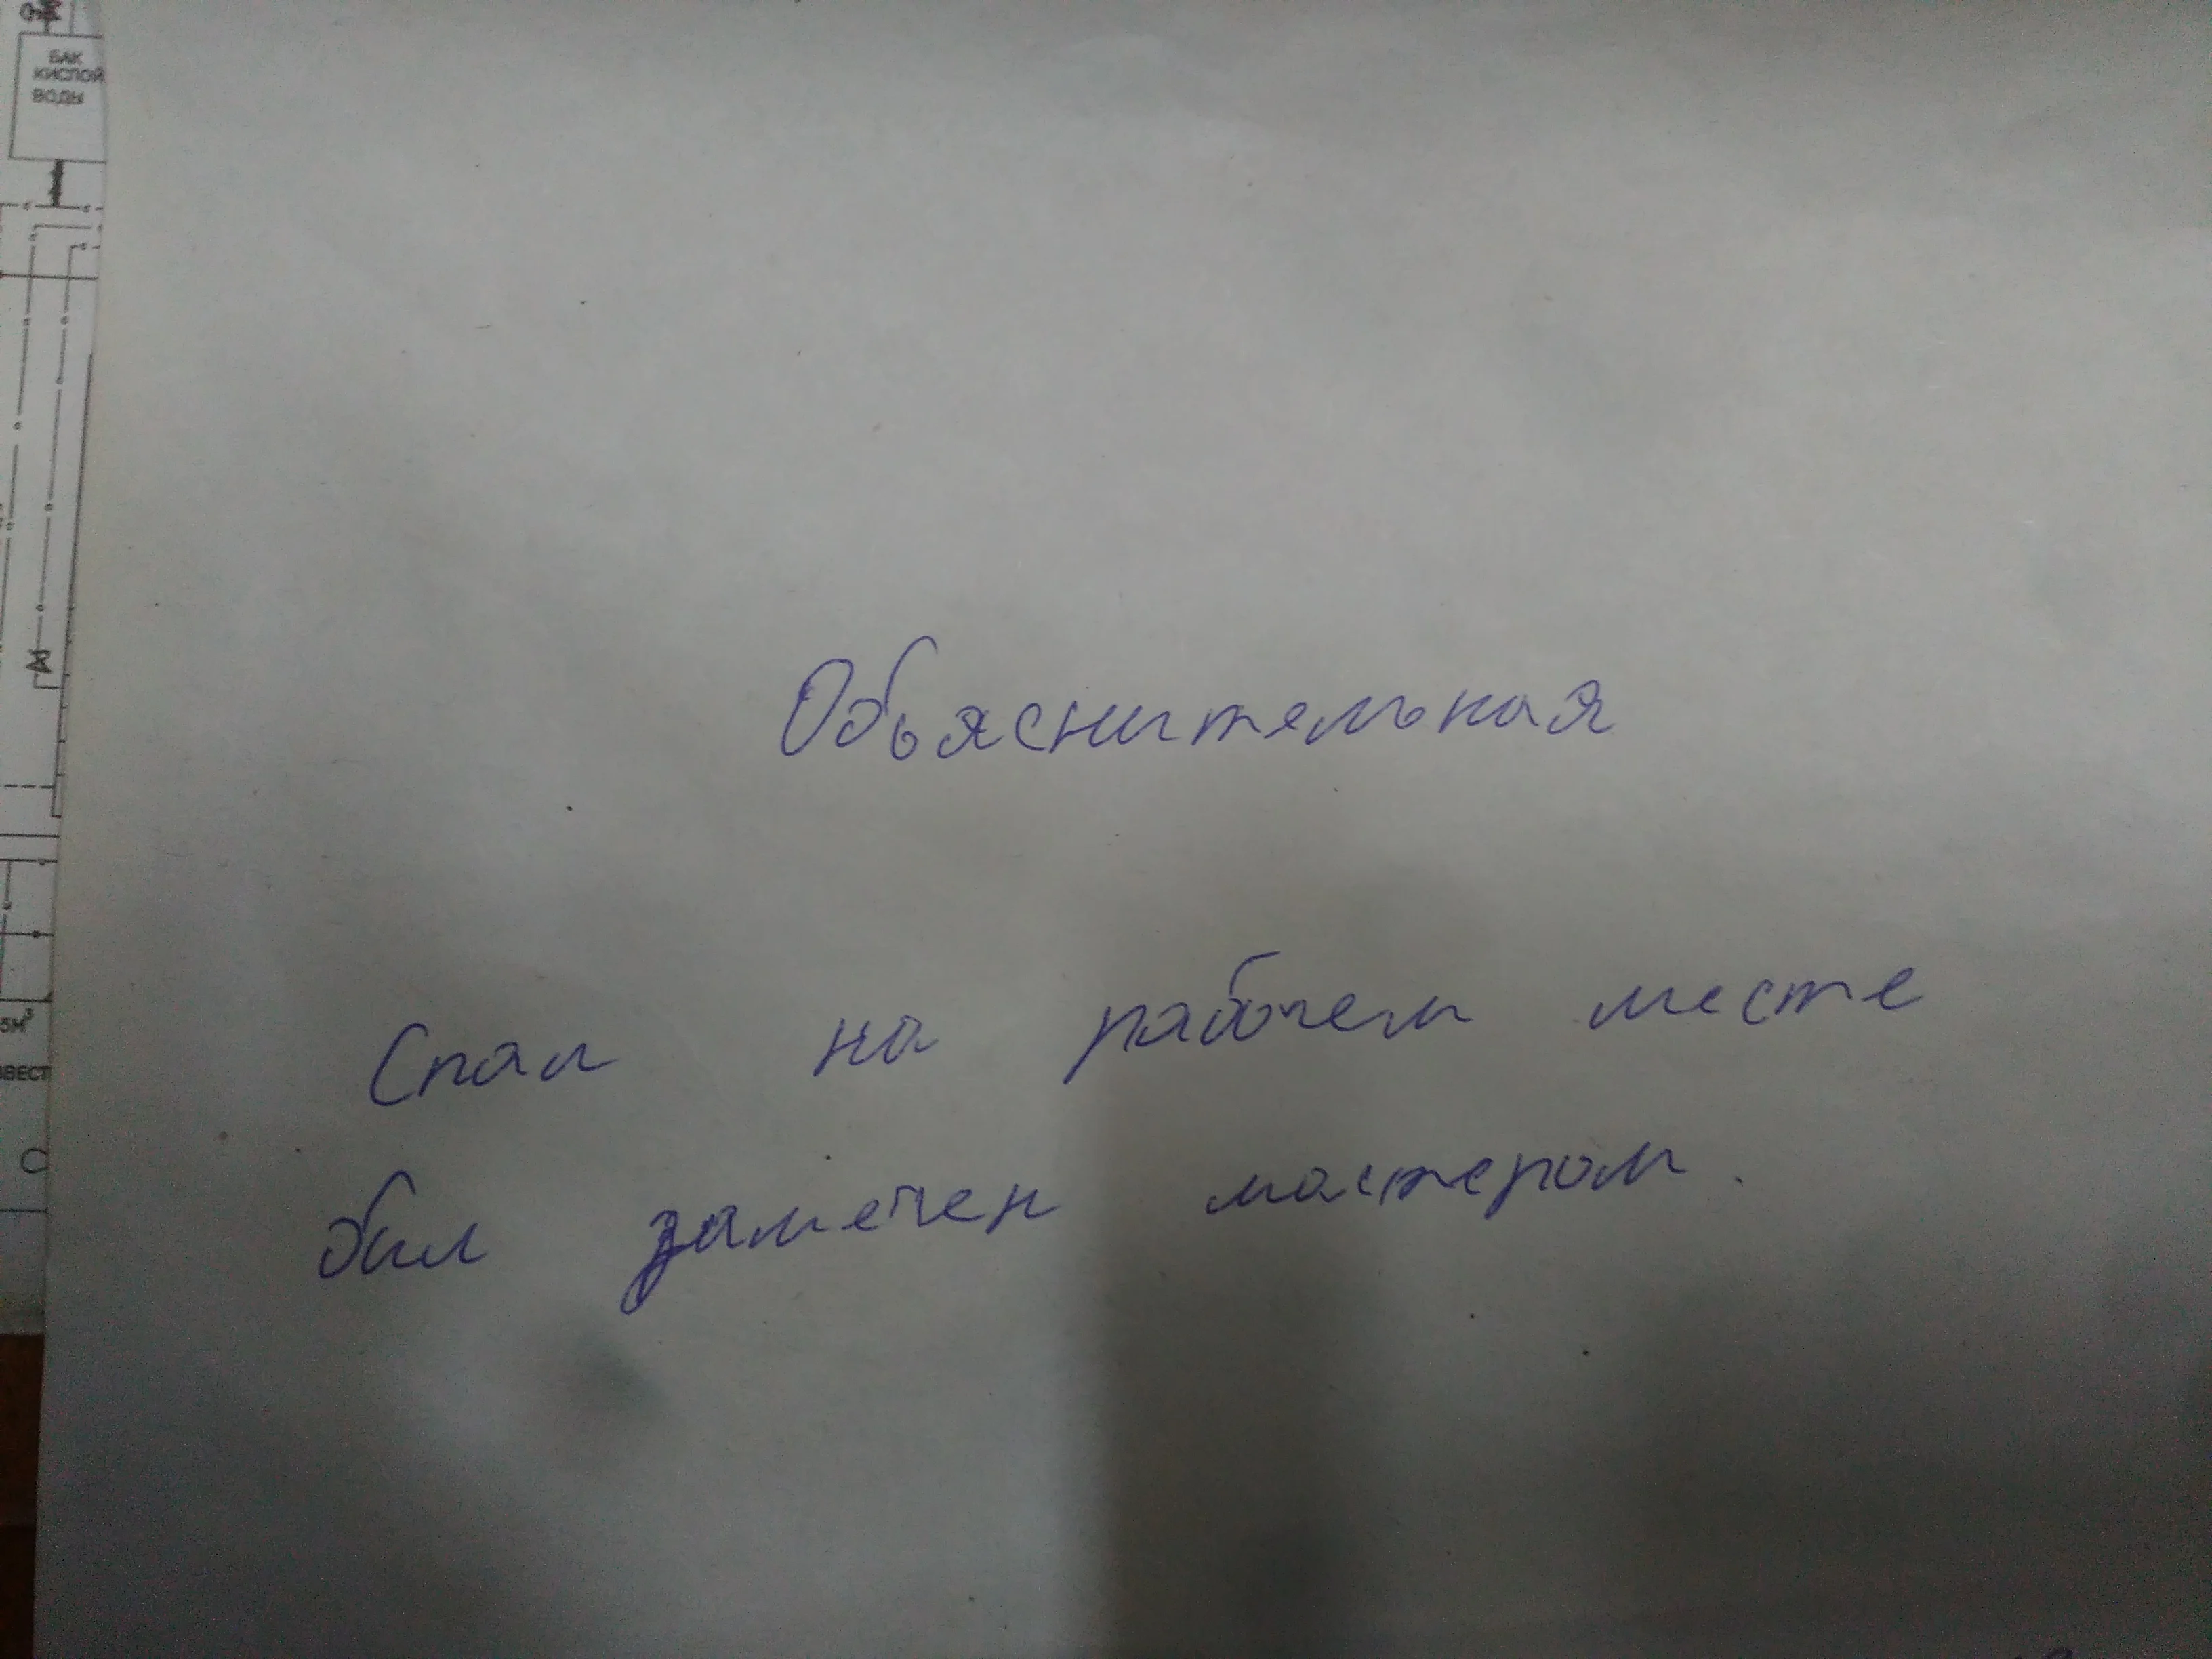 БАК
КИСЛОЙ
ВОДЫ
Объяснительная
Спал на рабочем месте
был замечен мастером.
5М³